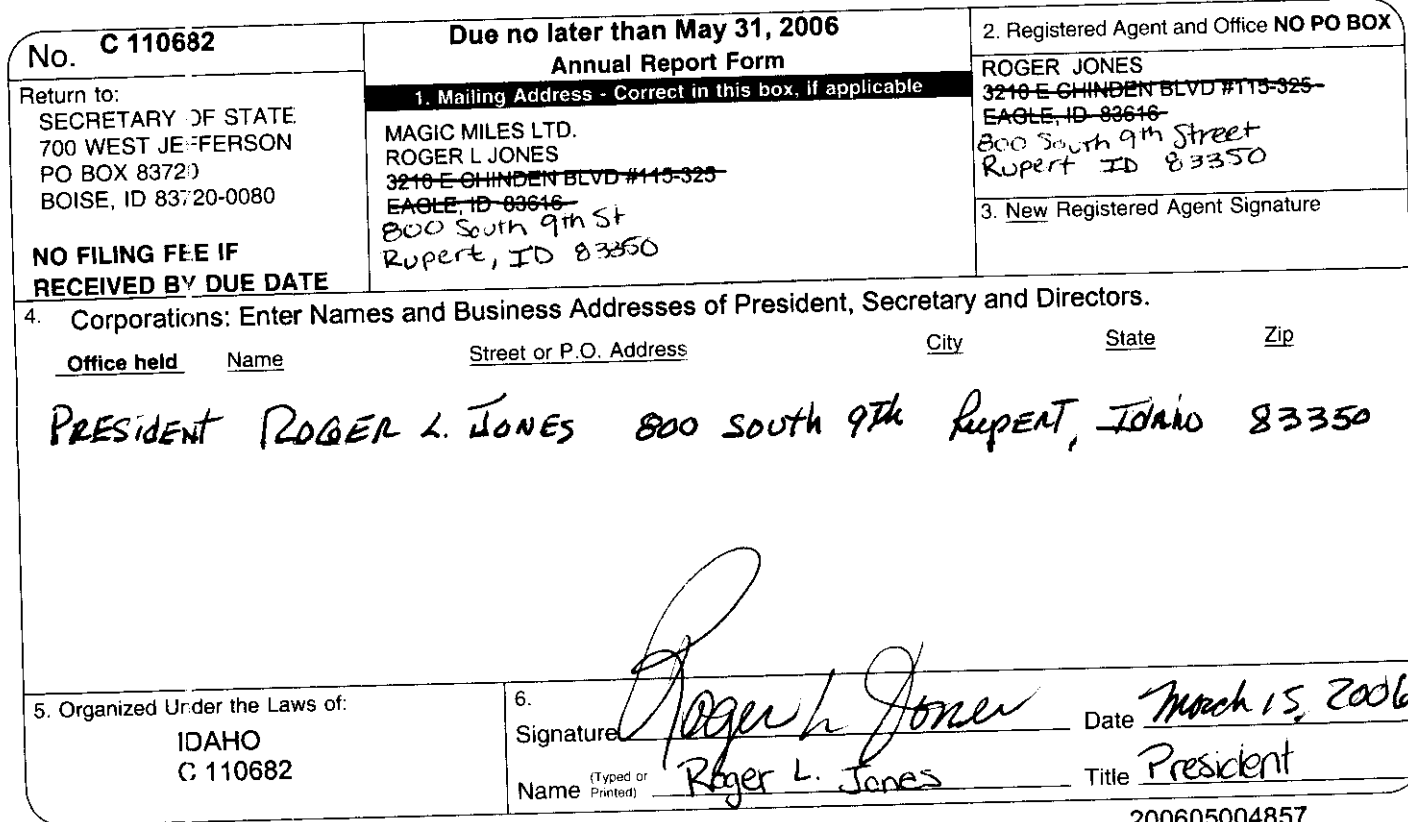 No. C 110682
Return to:
SECRETARY OF STATE
700 WEST JEFFERSON
PO BOX 83720
BOISE, ID 83720-0080
NO FILING FEE IF
RECEIVED BY DUE DATE
Due no later than May 31, 2006
Annual Report Form
1. Mailing Address - Correct in this box, if applicable
MAGIC MILES LTD.
ROGER L JONES
3210 E CHINDEN BLVD #115-325
EAGLE, ID 83616
800 South 9th St
Rupert, ID 83350
2. Registered Agent and Office NO PO BOX
ROGER JONES
3210 E CHINDEN BLVD #115-325
EAGLE, ID 83616
800 South 9th Street
Rupert ID 83350
3. New Registered Agent Signature
4. Corporations: Enter Names and Business Addresses of President, Secretary and Directors.
Office held Name Street or P.O. Address City State Zip
PRESIDENT ROGER L. JONES 800 South 9th RUPERT, IDAHO 83350
5. Organized Under the Laws of:
IDAHO
C 110682
6.
Signature Roger L Jones Date March 15, 2006
Name (Typed or Printed) Roger L. Jones Title President
200605004857